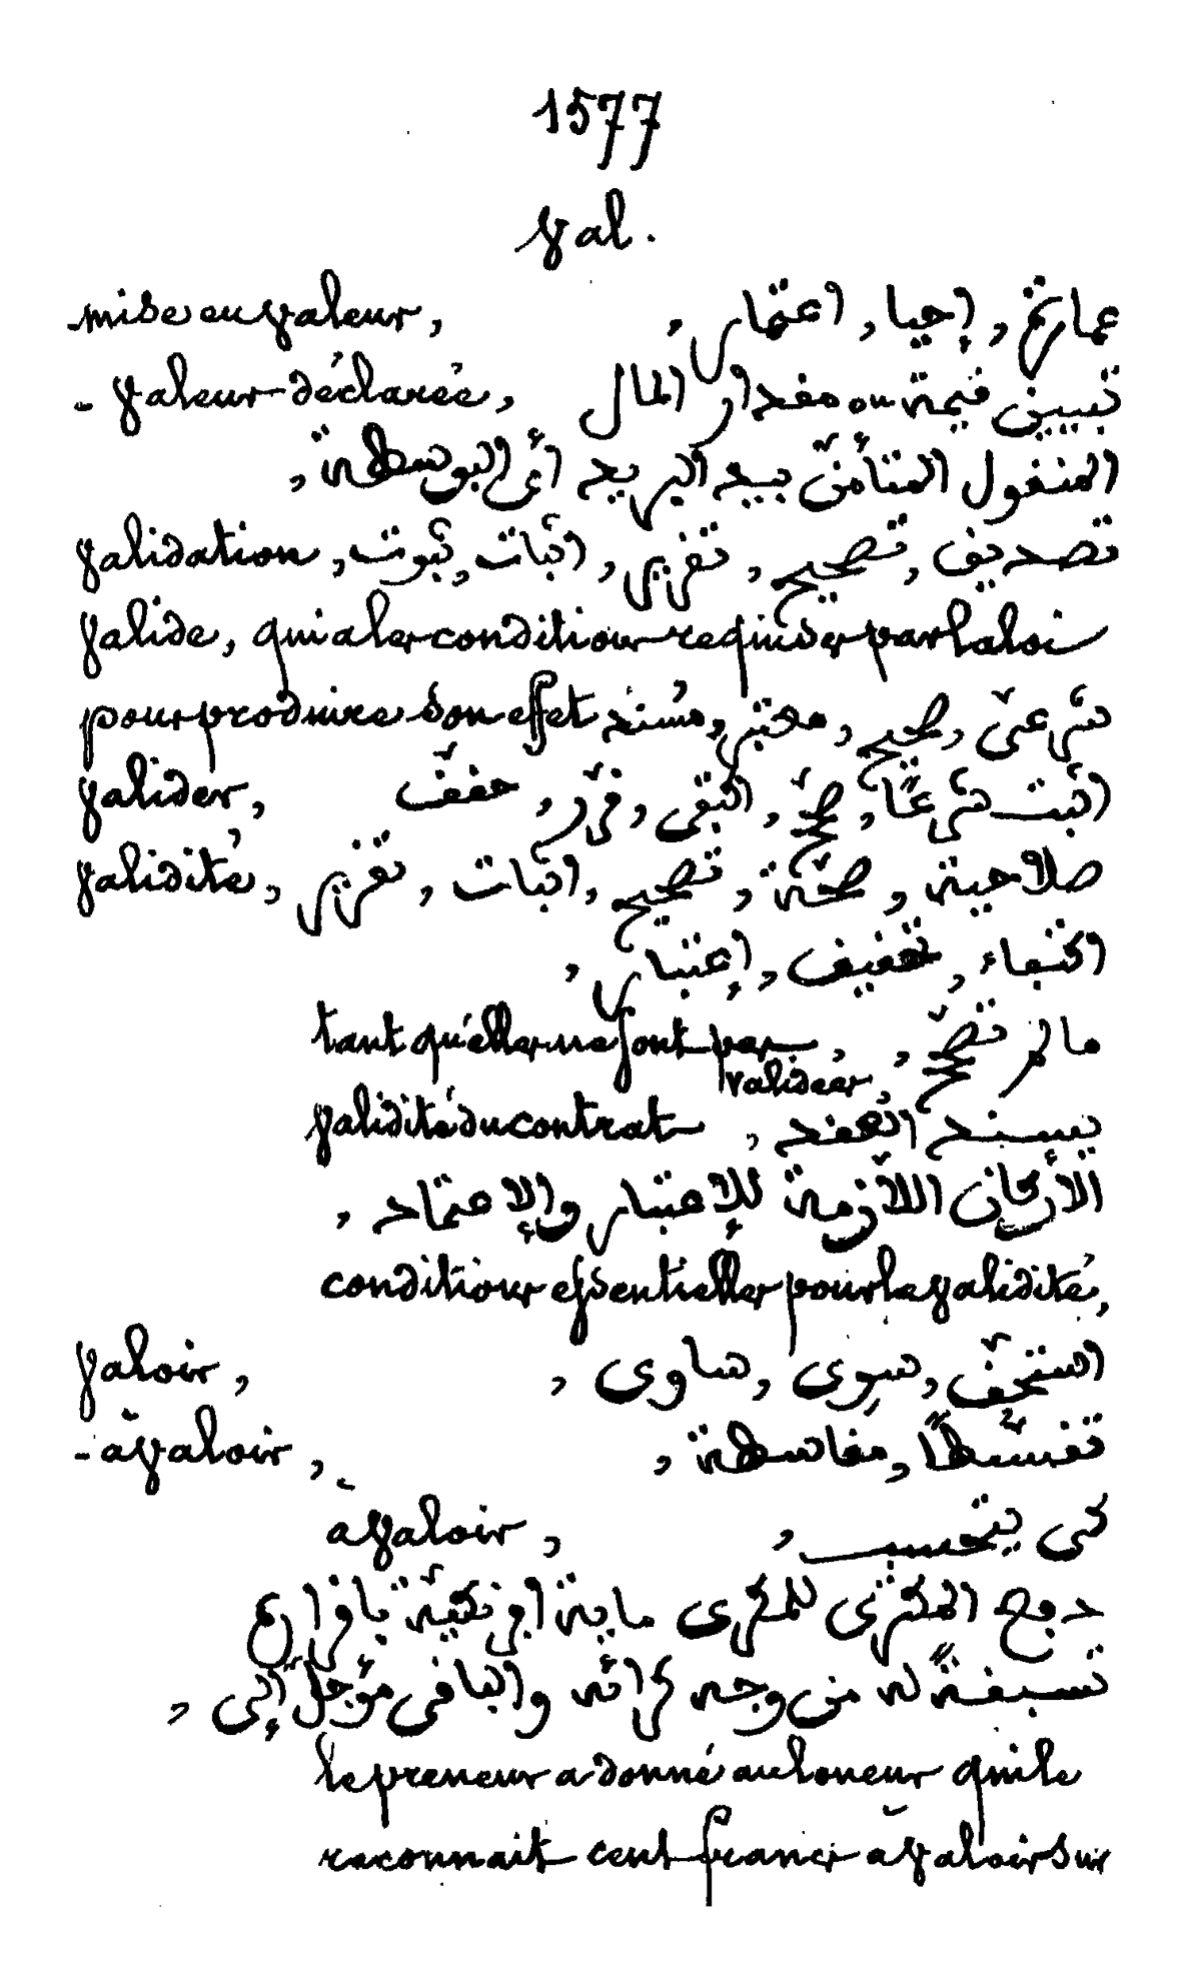 1577
Val.
mise en valeur, عمارة, إحيا, اعتمار,
- valeur déclarée, تبيين قيمة ou مقدار المال
المنقول المتأمّن بيد البريد أي البوسطة,
validation, تصديق, تصحيح, تقرير, اثبات, ثبوت
valide, qui a les conditions requises par la loi
pour produire son effet شرعيّ, صحيح, معتبر, مُسند
valider, اثبت شرعًا, صحّح, اتبقى, قرّر, حقّق
validité, صلاحية, صحّة, تصحيح, اثبات, تقرير,
اكتفاء, تحقيق, إعتبار,
ما لم تصحّح, tant qu'elles ne sont pas validées,
validité du contrat, يسند العقد
الأركان اللّازمة للإعتبار والإعتماد,
conditions essentielles pour la validité,
valoir, استحقّ, سوى, ساوى,
- à valoir, تقسّطًا, مقاسطة,
à valoir, كي يتحسب,
دفع المكتري للمكري ماية افرنكيّة باقراره
تسبقةً له من وجه كرائه والباقي مؤجل إلى,
le preneur a donné au loueur qui le
reconnait cent francs à valoir sur